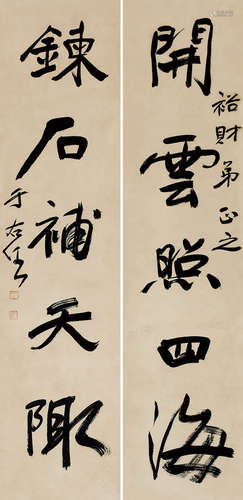 開雲照四海
裕財弟正之
鍊石補天陬
于右任